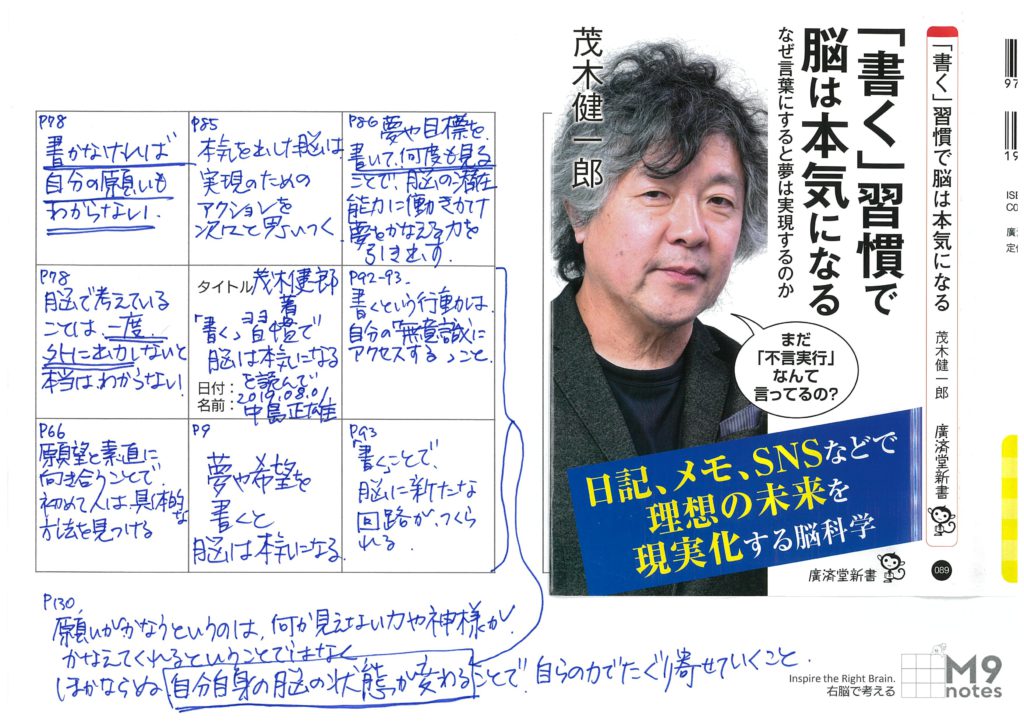 P78
書かなければ
自分の願いも
わからない!
P85
本気を出した脳は
実現のための
アクションを
次々と思いつく
P86 夢や目標を、
書いて、何度も見る
ことで、脳の潜在
能力に働きかけ
夢をかなえる力を
引き出す。
P78
脳で考えている
ことは、一度、
外に出力しないと
本当はわからない
タイトル 茂木健一郎
著
「書く」習慣で
脳は本気になる
を読んで
日付:2019.08.01
名前:中島正雄
P92-93.
書くという行動は、
自分の「無意識」に
アクセスすること。
P66
願望と素直に
向き合うことで、
初めて人は、具体的な
方法を見つける
P9
夢や希望を
書くと
脳は本気になる。
P93
書くことで、
脳に新たな
回路が、つくら
れる。
P130,
願いがかなうというのは、何か見えない力や神様が
かなえてくれるということではなく
ほかならぬ自分自身の脳の状態が変わることで、自らの力でたぐり寄せていくこと.
「書く」習慣で
脳は本気になる
なぜ言葉にすると夢は実現するのか
茂木健一郎
まだ
「不言実行」
なんて
言ってるの?
日記、メモ、SNSなどで
理想の未来を
現実化する脳科学
廣済堂新書
「書く」習慣で脳は本気になる
茂木健一郎
廣済堂新書
089
97
19
Inspire the Right Brain.
右脳で考える
M9
notes